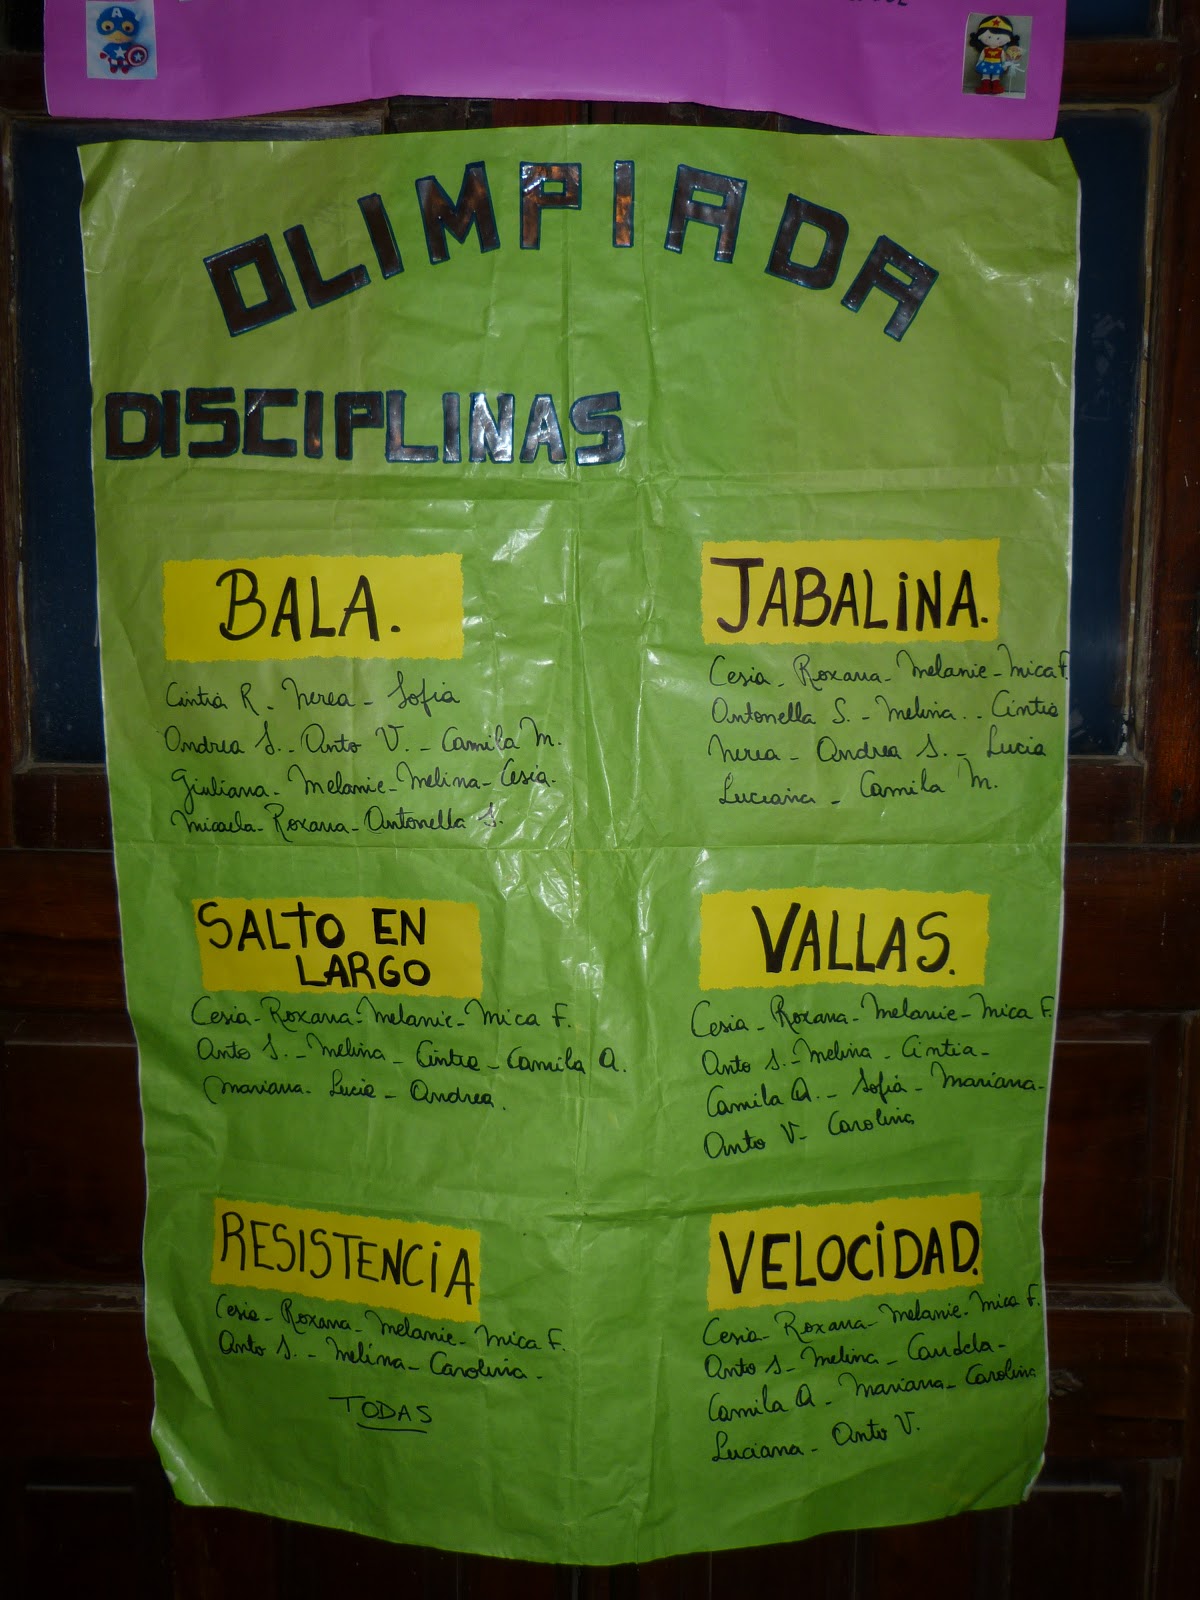 OLIMPIADA
DISCIPLINAS
BALA.
Cintia R - Nerea - Sofia
Andrea S. - Anto V. - Camila M.
Giuliana - Melanie - Melina - Cesia.
Micaela - Roxana - Antonella S.
JABALINA.
Cesia - Roxana - Melanie - Mica F.
Antonella S. - Melina - Cintia
Nerea - Andrea S. - Lucia
Luciana - Camila M.
SALTO EN
LARGO
Cesia - Roxana - Melanie - Mica F.
Anto S. - Melina - Cintia - Camila A.
Mariana - Lucia - Andrea.
VALLAS.
Cesia - Roxana - Melanie - Mica F.
Anto S. - Melina - Cintia -
Camila A. - Sofia - Mariana -
Anto V - Carolina
RESISTENCIA
Cesia - Roxana - Melanie - Mica F.
Anto S. - Melina - Carolina -
TODAS
VELOCIDAD.
Cesia - Roxana - Melanie - Mica F.
Anto S - Melina - Candela -
Camila A - Mariana - Carolina
Luciana - Anto V.